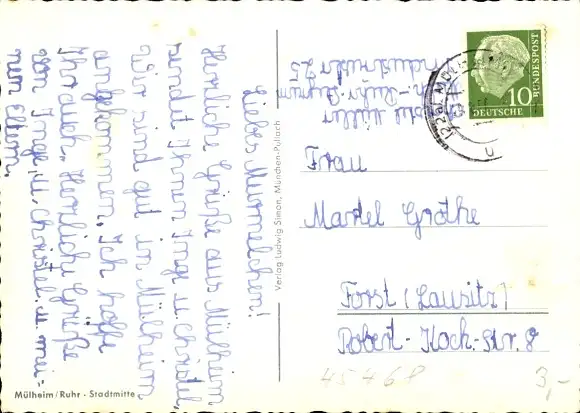 Liebes Murmelchen!
Herzliche Grüße aus Mülheim
sendet Ihnen Inge u. Christel.
Wir sind gut in Mülheim
angekommen. Ich hoffe
Ihr auch. Herzliche Grüße
von Inge u. Christel u. mei-
nen Eltern.
Mülheim/Ruhr · Stadtmitte
Verlag Ludwig Simon, München-Pullach
Christel Müller
Industriestr. 25
DEUTSCHE
BUNDESPOST
10
Frau
Martel Grothe
Forst (Lausitz)
Robert-Koch-Str. 8
45468
3,-